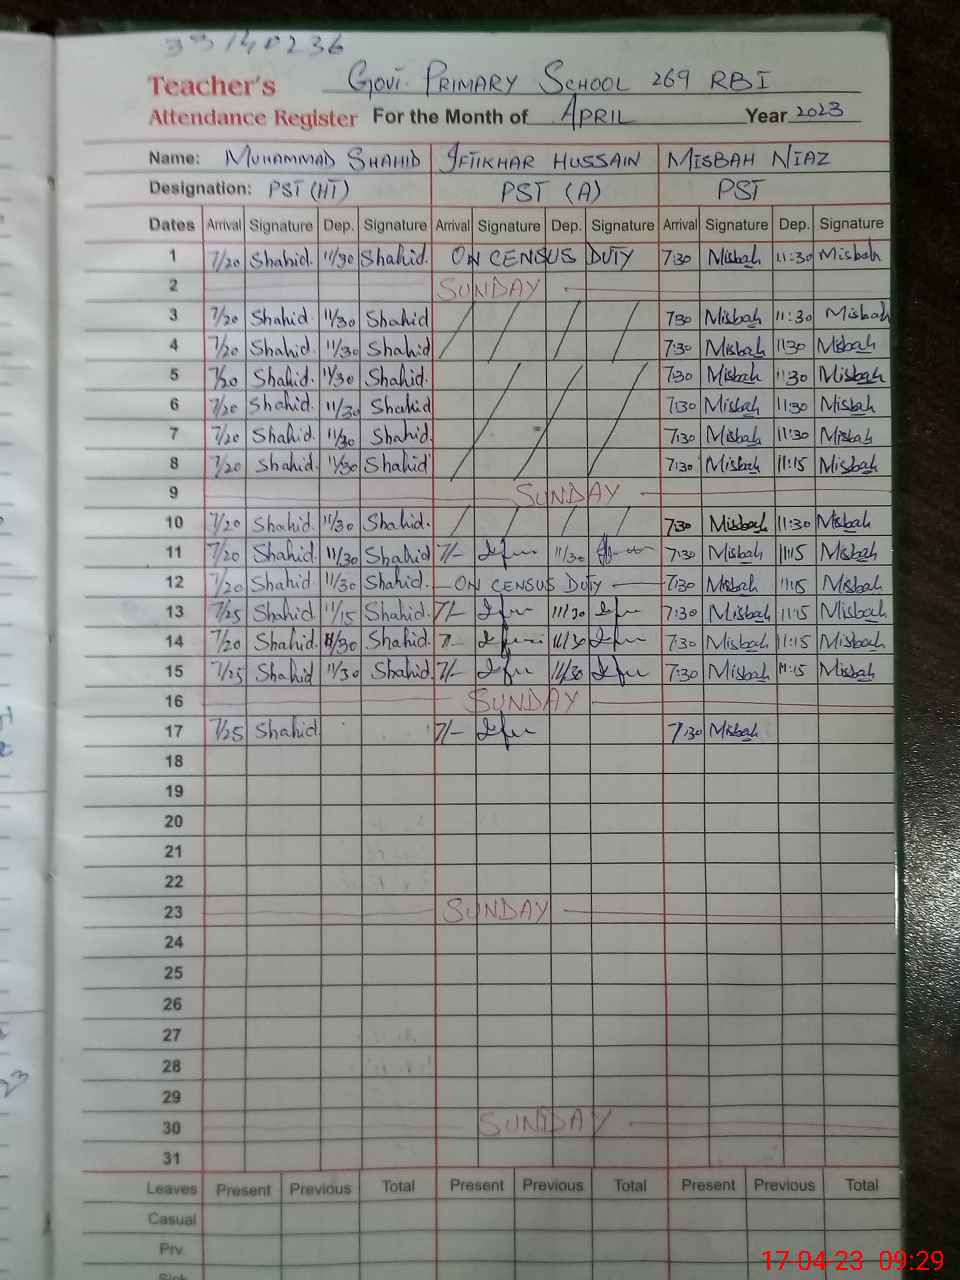 33140236
Teacher's Govt. PRIMARY SCHOOL 269 RBI
Attendance Register For the Month of APRIL Year 2023
Name: MUHAMMAD SHAHID IFTIKHAR HUSSAIN MISBAH NIAZ
Designation: PST (HT) PST (A) PST
Dates Arrival Signature Dep. Signature Arrival Signature Dep. Signature Arrival Signature Dep. Signature
1 7/20 Shahid. 11/30 Shahid. ON CENSUS DUTY 7:30 Misbah 11:30 Misbah
2 SUNDAY
3 7/20 Shahid 11/30 Shahid 7:30 Misbah 11:30 Misbah
4 7/20 Shahid. 11/30 Shahid 7:30 Misbah 11:30 Misbah
5 7/20 Shahid. 11/30 Shahid. 7:30 Misbah 11:30 Misbah
6 7/20 Shahid. 11/30 Shahid 7:30 Misbah 11:30 Misbah
7 7/20 Shahid. 11/30 Shahid. 7:30 Misbah 11:30 Misbah
8 7/20 Shahid. 11/30 Shahid 7:30 Misbah 11:15 Misbah
9 SUNDAY
10 7/20 Shahid. 11/30 Shahid. 7:30 Misbah 11:30 Misbah
11 7/20 Shahid. 11/30 Shahid 7/- 11/30 7:30 Misbah 11:15 Misbah
12 7/20 Shahid. 11/30 Shahid. ON CENSUS DUTY 7:30 Misbah 11:15 Misbah
13 7/25 Shahid 11/15 Shahid. 7/- 11/30 7:30 Misbah 11:15 Misbah
14 7/20 Shahid. 11/30 Shahid. 11/30 7:30 Misbah 11:15 Misbah
15 7/25 Shahid 11/30 Shahid 7/- 11/30 7:30 Misbah 11:15 Misbah
16 SUNDAY
17 7/25 Shahid. 7/- 7:30 Misbah
18
19
20
21
22
23 SUNDAY
24
25
26
27
28
29
30 SUNDAY
31
Leaves Present Previous Total Present Previous Total Present Previous Total
Casual
Prv.
Sick
17-04-23 09:29